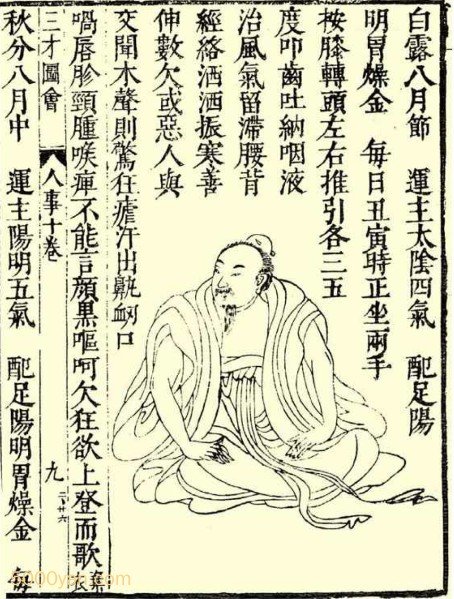 白露八月節　運主太陰四氣　配足陽
明胃燥金　每日丑寅時正坐兩手
按膝轉頭左右推引各三五
度叩齒吐納咽液
治風氣留滯腰背
經絡洒洒振寒善
伸數欠或惡人與
交聞木聲則驚狂瘧汗出鼽衄口
喎唇胗頸腫喉痺不能言顏黑嘔呵欠狂欲上登而歌棄衣
三才圖會　人事十卷　九
秋分八月中　運主陽明五氣　配足陽明胃燥金　每
5000yan.com